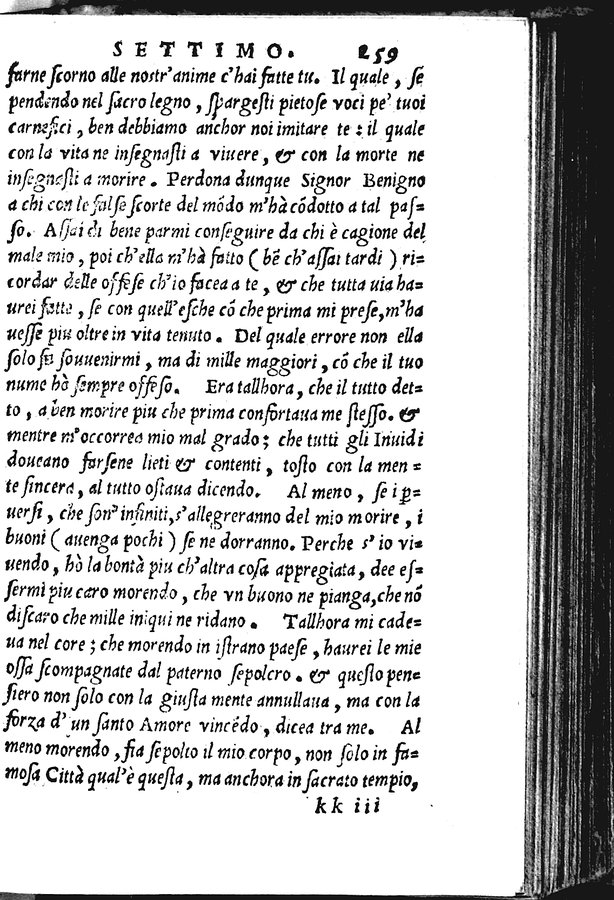 SETTIMO. 259
farne ſcorno alle noſtr'anime c'hai fatte tu. Il quale, ſe
pendendo nel ſacro legno, ſpargeſti pietoſe voci pe' tuoi
carnefici, ben debbiamo anchor noi imitare te : il quale
con la vita ne inſegnaſti a viuere, & con la morte ne
inſegnaſti a morire. Perdona dunque Signor Benigno
a chi con le falſe ſcorte del mõdo m'hà cõdotto a tal paſ=
ſo. Aſſai di bene parmi conſeguire da chi è cagione del
male mio, poi ch'ella m'hà fatto ( bẽ ch'aſſai tardi ) ri=
cordar delle offeſe ch'io facea a te, & che tutta uia ha=
urei fatte, ſe con quell'eſche cõ che prima mi preſe, m'ha
ueſſe piu oltre in vita tenuto. Del quale errore non ella
ſolo fu ſouuenirmi, ma di mille maggiori, cõ che il tuo
nume hò ſempre offeſo. Era tallhora, che il tutto det=
to, a ben morire piu che prima confortaua me ſteſſo. &
mentre m'occorrea mio mal grado; che tutti gli Inuidi
doueano farſene lieti & contenti, toſto con la men=
te ſincera, al tutto oſtaua dicendo. Al meno, ſe i ꝑ=
uerſi, che ſon' infiniti, s'allegreranno del mio morire, i
buoni ( auenga pochi ) ſe ne dorranno. Perche s' io vi=
uendo, hò la bontà piu ch'altra coſa appregiata, dee eſ=
ſermi piu caro morendo, che vn buono ne pianga, che nõ
diſcaro che mille iniqui ne ridano. Tallhora mi cade=
ua nel core; che morendo in iſtrano paeſe, haurei le mie
oſſa ſcompagnate dal paterno ſepolcro. & queſto pen=
ſiero non ſolo con la giuſta mente annullaua, ma con la
forza d' un ſanto Amore vincẽdo, dicea tra me. Al
meno morendo, fia ſepolto il mio corpo, non ſolo in fa=
moſa Città qual'è queſta, ma anchora in ſacrato tempio,
kk iii